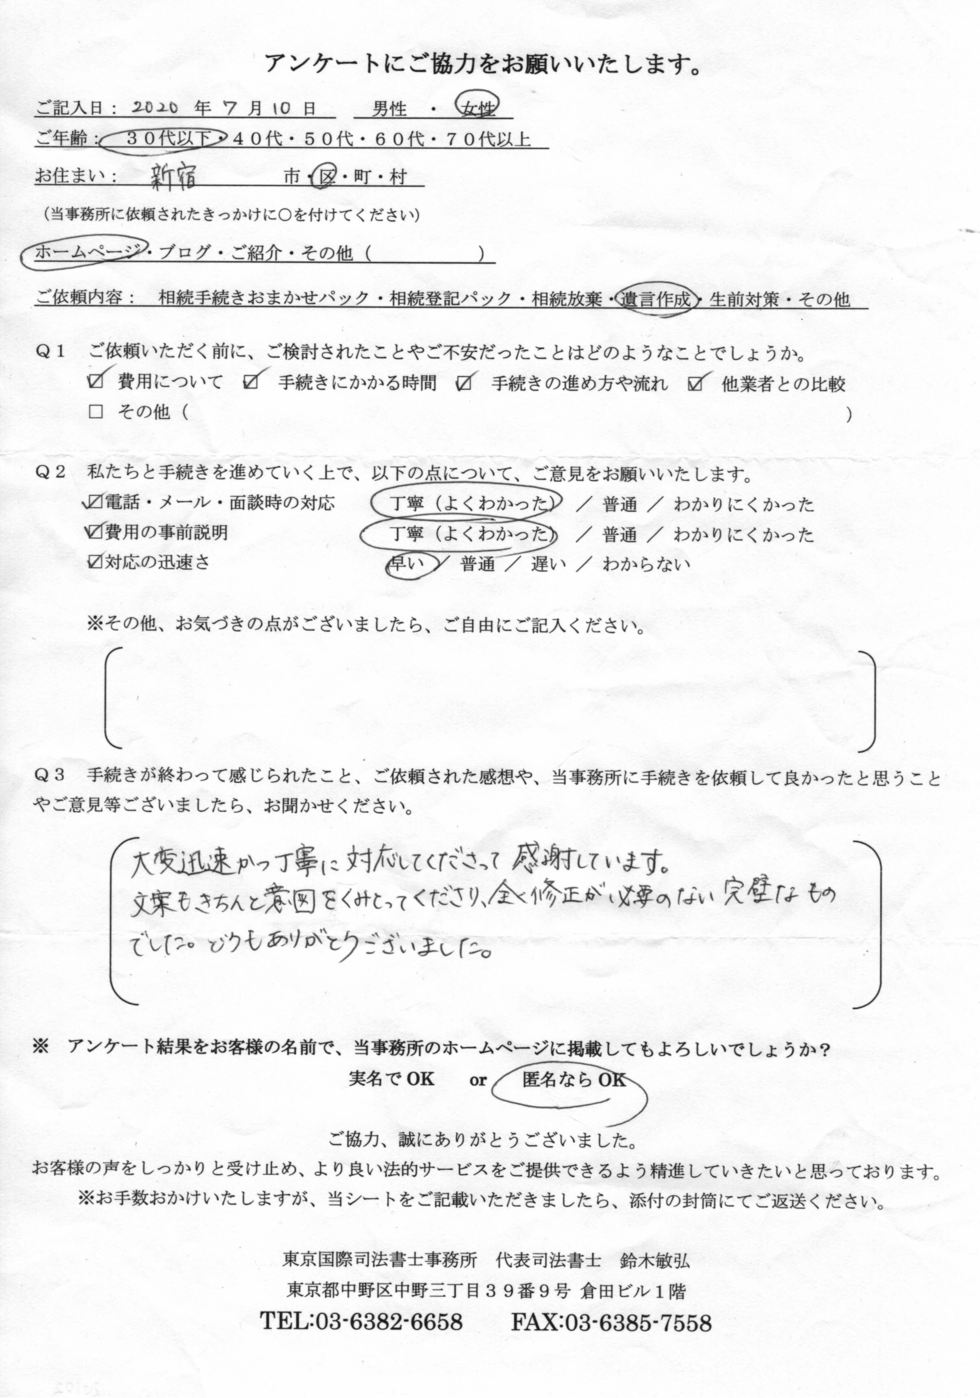 アンケートにご協力をお願いいたします。
ご記入日： 2020 年 7 月 10 日　男性 ・ 女性
ご年齢：　３０代以下・４０代・５０代・６０代・７０代以上
お住まい：　新宿　市・区・町・村
（当事務所に依頼されたきっかけに○を付けてください）
ホームページ・ブログ・ご紹介・その他（　　　　　　）
ご依頼内容：　相続手続きおまかせパック・相続登記パック・相続放棄・遺言作成・生前対策・その他
Ｑ１　ご依頼いただく前に、ご検討されたことやご不安だったことはどのようなことでしょうか。
☑ 費用について　☑ 手続きにかかる時間　☑ 手続きの進め方や流れ　☑ 他業者との比較
□ その他（　　　　　　　　　　　　　　　　　　　　）
Ｑ２　私たちと手続きを進めていく上で、以下の点について、ご意見をお願いいたします。
☑電話・メール・面談時の対応　丁寧（よくわかった）　／ 普通 ／ わかりにくかった
☑費用の事前説明　丁寧（よくわかった）　／ 普通 ／ わかりにくかった
☑対応の迅速さ　早い ／ 普通 ／ 遅い ／ わからない
※その他、お気づきの点がございましたら、ご自由にご記入ください。
Ｑ３　手続きが終わって感じられたこと、ご依頼された感想や、当事務所に手続きを依頼して良かったと思うこと
やご意見等ございましたら、お聞かせください。
大変迅速かつ丁寧に対応してくださって感謝しています。
文案もきちんと意図をくみとってくださり、全く修正が必要のない完璧なもの
でした。どうもありがとうございました。
※　アンケート結果をお客様の名前で、当事務所のホームページに掲載してもよろしいでしょうか？
実名で OK　or　匿名なら OK
ご協力、誠にありがとうございました。
お客様の声をしっかりと受け止め、より良い法的サービスをご提供できるよう精進していきたいと思っております。
※お手数おかけいたしますが、当シートをご記載いただきましたら、添付の封筒にてご返送ください。
東京国際司法書士事務所　代表司法書士　鈴木敏弘
東京都中野区中野三丁目３９番９号 倉田ビル１階
TEL:03-6382-6658　FAX:03-6385-7558